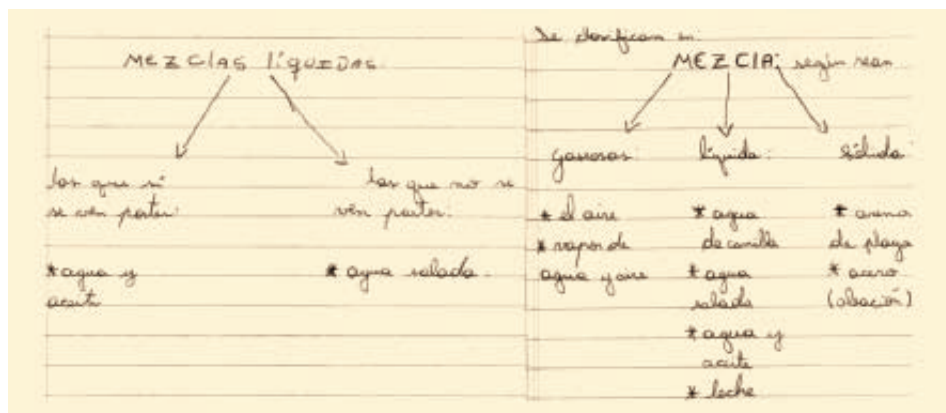 MEZCLAS LÍQUIDAS
las que sí
se ven partes:
* agua y
aceite
las que no se
ven partes:
* agua salada.
Se clasifican en:
MEZCLA: según sean
gaseosas:
* el aire
* vapor de
agua y aire
líquida:
* agua
de canilla
* agua
salada
* agua y
aceite
* leche
sólida:
* arena
de playa
* acero
(aleación)